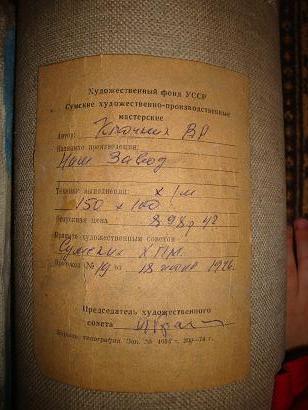 Художественный фонд УССР
Сумские художественно-производственные
мастерские
Автор: Ключник ВР
Название произведения:
Наш Завод
Техника выполнения: х 1 м
150 х 160
Отпускная цена 898р 42
Принято художественным советом
Сумских ХПМ.
Протокол № 19 от 18 1976.
Председатель художественного
совета
Сумская типография Зак. № 200—74 г.